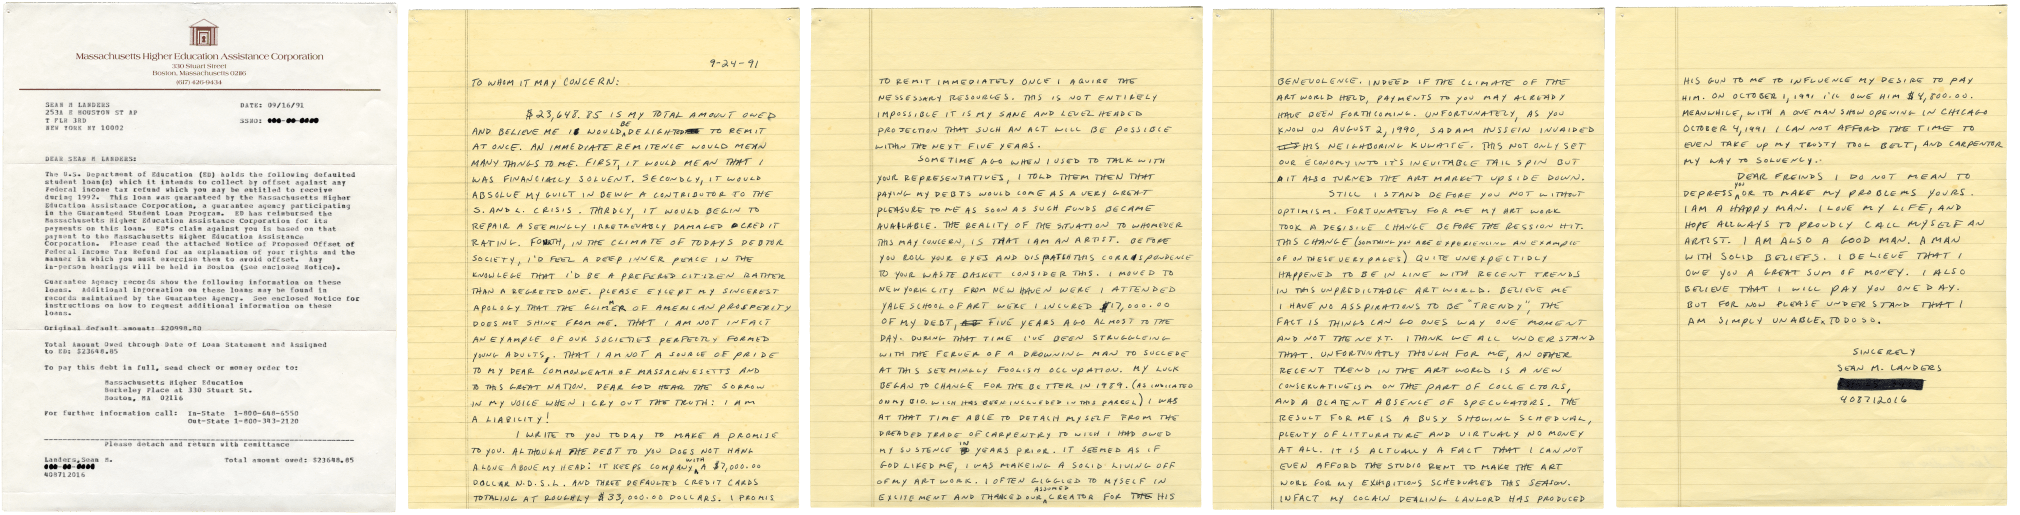 Massachusetts Higher Education Assistance Corporation
330 Stuart Street
Boston, Massachusetts 02116
(617) 426-9434
SEAN M LANDERS
DATE: 09/16/91
253A E HOUSTON ST AP
SSNO:
T FLR 3RD
NEW YORK NY 10002
DEAR SEAN M LANDERS:
The U.S. Department of Education (ED) holds the following defaulted
student loan(s) which it intends to collect by offset against any
Federal income tax refund which you may be entitled to receive
during 1992. This loan was guaranteed by the Massachusetts Higher
Education Assistance Corporation, a guarantee agency participating
in the Guaranteed Student Loan Program. ED has reimbursed the
Massachusetts Higher Education Assistance Corporation for its
payments on this loan. ED's claim against you is based on that
payment to the Massachusetts Higher Education Assistance
Corporation. Please read the attached Notice of Proposed Offset of
Federal Income Tax Refund for an explanation of your rights and the
manner in which you must exercise them to avoid offset. Any
in-person hearings will be held in Boston (See enclosed Notice).
Guarantee Agency records show the following information on these
loans. Additional information on these loans may be found in
records maintained by the Guarantee Agency. See enclosed Notice for
instructions on how to request additional information on these
loans.
Original default amount: $20998.80
Total Amount Owed through Date of Loan Statement and Assigned
to ED: $23648.85
To pay this debt in full, send check or money order to:
Massachusetts Higher Education
Berkeley Place at 330 Stuart St.
Boston, MA 02116
For further information call: In-State 1-800-648-6550
Out-State 1-800-343-2120
Please detach and return with remittance
Landers, Sean M.
Total amount owed: $23648.85
408712016
9-24-91
TO WHOM IT MAY CONCERN:
$23,648.85 IS MY TOTAL AMOUNT OWED
AND BELIEVE ME I WOULD BE DELIGHTED TO REMIT
AT ONCE. AN IMMEDIATE REMITENCE WOULD MEAN
MANY THINGS TO ME. FIRST, IT WOULD MEAN THAT I
WAS FINANCIALLY SOLVENT. SECONDLY, IT WOULD
ABSOLVE MY GUILT IN BEING A CONTRIBUTOR TO THE
S. AND L. CRISIS. THIRDLY, IT WOULD BEGIN TO
REPAIR A SEEMINGLY IRRETROVABLY DAMAGED CREDIT
RATING. FORTH, IN THE CLIMATE OF TODAYS DEBTOR
SOCIETY, I'D FEEL A DEEP INNER PEACE IN THE
KNOWLEGE THAT I'D BE A PREFERED CITIZEN RATHER
THAN A REGRETED ONE. PLEASE EXCEPT MY SINCEREST
APOLOGY THAT THE GLIMER OF AMERICAN PROSPERITY
DOES NOT SHINE FROM ME. THAT I AM NOT INFACT
AN EXAMPLE OF OUR SOCIETIES PERFECTLY FORMED
YOUNG ADULTS. THAT I AM NOT A SOURCE OF PRIDE
TO MY DEAR COMMONWEATH OF MASSACHUSETTS AND
TO THIS GREAT NATION. DEAR GOD HEAR THE SORROW
IN MY VOICE WHEN I CRY OUT THE TRUTH: I AM
A LIABILITY!
I WRITE TO YOU TODAY TO MAKE A PROMISE
TO YOU. ALTHOUGH THE DEBT TO YOU DOES NOT HANG
ALONE ABOVE MY HEAD: IT KEEPS COMPANY WITH A $7,000.00
DOLLAR N.D.S.L. AND THREE DEFAULTED CREDIT CARDS
TOTALING AT ROUGHLY $33,000.00 DOLLARS. I PROMIS
TO REMIT IMMEDIATELY ONCE I AQUIRE THE
NESSESSARY RESOURCES. THIS IS NOT ENTIRELY
IMPOSSIBLE IT IS MY SANE AND LEVEL HEADED
PROJECTION THAT SUCH AN ACT WILL BE POSSIBLE
WITHIN THE NEXT FIVE YEARS.
SOMETIME AGO WHEN I USED TO TALK WITH
YOUR REPRESENTATIVES, I TOLD THEM THEN THAT
PAYING MY DEBTS WOULD COME AS A VERY GREAT
PLEASURE TO ME AS SOON AS SUCH FUNDS BECAME
AVAILABLE. THE REALITY OF THE SITUATION TO WHOMEVER
THIS MAY CONCERN, IS THAT I AM AN ARTIST. BEFORE
YOU ROLL YOUR EYES AND DISPATCH THIS CORRISPONDENCE
TO YOUR WASTE BASKET CONSIDER THIS. I MOVED TO
NEW YORK CITY FROM NEW HAVEN WERE I ATTENDED
YALE SCHOOL OF ART WERE I INCURED $17,000.00
OF MY DEBT, FIVE YEARS AGO ALMOST TO THE
DAY. DURING THAT TIME I'VE BEEN STRUGGLEING
WITH THE FERVER OF A DROWNING MAN TO SUCCEDE
AT THIS SEEMINGLY FOOLISH OCCUPATION. MY LUCK
BEGAN TO CHANGE FOR THE BETTER IN 1989. (AS INDICATED
ON MY BIO. WICH HAS BEEN INCLUDED IN THIS PARCEL) I WAS
AT THAT TIME ABLE TO DETACH MYSELF FROM THE
DREADED TRADE OF CARPENTRY TO WICH I HAD OWED
MY SUSTENCE IN YEARS PRIOR. IT SEEMED AS IF
GOD LIKED ME, I WAS MAKEING A SOLID LIVING OFF
OF MY ART WORK. I OFTEN GIGGLED TO MYSELF IN
EXCITEMENT AND THANCED OUR ASSUMED CREATOR FOR HIS
BENEVOLENCE. INDEED IF THE CLIMATE OF THE
ART WORLD HELD, PAYMENTS TO YOU MAY ALREADY
HAVE BEEN FORTHCOMING. UNFORTUNATELY, AS YOU
KNOW ON AUGUST 2, 1990, SADAM HUSSEIN INVAIDED
HIS NEIGHBORING KUWAITE. THIS NOT ONLY SET
OUR ECONOMY INTO IT'S INEVITABLE TAIL SPIN BUT
IT ALSO TURNED THE ART MARKET UPSIDE DOWN.
STILL I STAND BEFORE YOU NOT WITHOUT
OPTIMISM. FORTUNATELY FOR ME MY ART WORK
TOOK A DESISIVE CHANGE BEFORE THE RESSION HIT.
THIS CHANGE (SOMTHING YOU ARE EXPERIENCING AN EXAMPLE
OF ON THESE VERY PAGES) QUITE UNEXPECTIDLY
HAPPENED TO BE IN LINE WITH RECENT TRENDS
IN THIS UNPREDICTABLE ART WORLD. BELIEVE ME
I HAVE NO ASSPIRATIONS TO BE "TRENDY", THE
FACT IS THINGS CAN GO ONES WAY ONE MOMENT
AND NOT THE NEXT. I THINK WE ALL UNDERSTAND
THAT. UNFORTUNATLY THOUGH FOR ME, AN OTHER
RECENT TREND IN THE ART WORLD IS A NEW
CONSERVATIVEISM ON THE PART OF COLLECTORS,
AND A BLATENT ABSENCE OF SPECULATORS. THE
RESULT FOR ME IS A BUSY SHOWING SCHEDUAL,
PLENTY OF LITTURATURE AND VIRTUALY NO MONEY
AT ALL. IT IS ALTUALLY A FACT THAT I CAN NOT
EVEN AFFORD THE STUDIO RENT TO MAKE THE ART
WORK FOR MY EXHIBITIONS SCHEDUALED THIS SEASON.
INFACT MY COCAIN DEALING LANLORD HAS PRODUCED
HIS GUN TO ME TO INFLUENCE MY DESIRE TO PAY
HIM. ON OCTOBER 1, 1991 I'LL OWE HIM $4,800.00.
MEANWHILE, WITH A ONE MAN SHOW OPENING IN CHICAGO
OCTOBER 4, 1991 I CAN NOT AFFORD THE TIME TO
EVEN TAKE UP MY TRUSTY TOOL BELT, AND CARPENTOR
MY WAY TO SOLVENCY.
DEAR FREINDS I DO NOT MEAN TO
DEPRESS YOU, OR TO MAKE MY PROBLEMS YOURS.
I AM A HAPPY MAN. I LOVE MY LIFE, AND
HOPE ALLWAYS TO PROUDLY CALL MYSELF AN
ARTIST. I AM ALSO A GOOD MAN. A MAN
WITH SOLID BELIEFS. I BELIEVE THAT I
OWE YOU A GREAT SUM OF MONEY. I ALSO
BELIEVE THAT I WILL PAY YOU ONE DAY.
BUT FOR NOW PLEASE UNDERSTAND THAT I
AM SIMPLY UNABLE TO DO SO.
SINCERELY
SEAN M. LANDERS
408712016